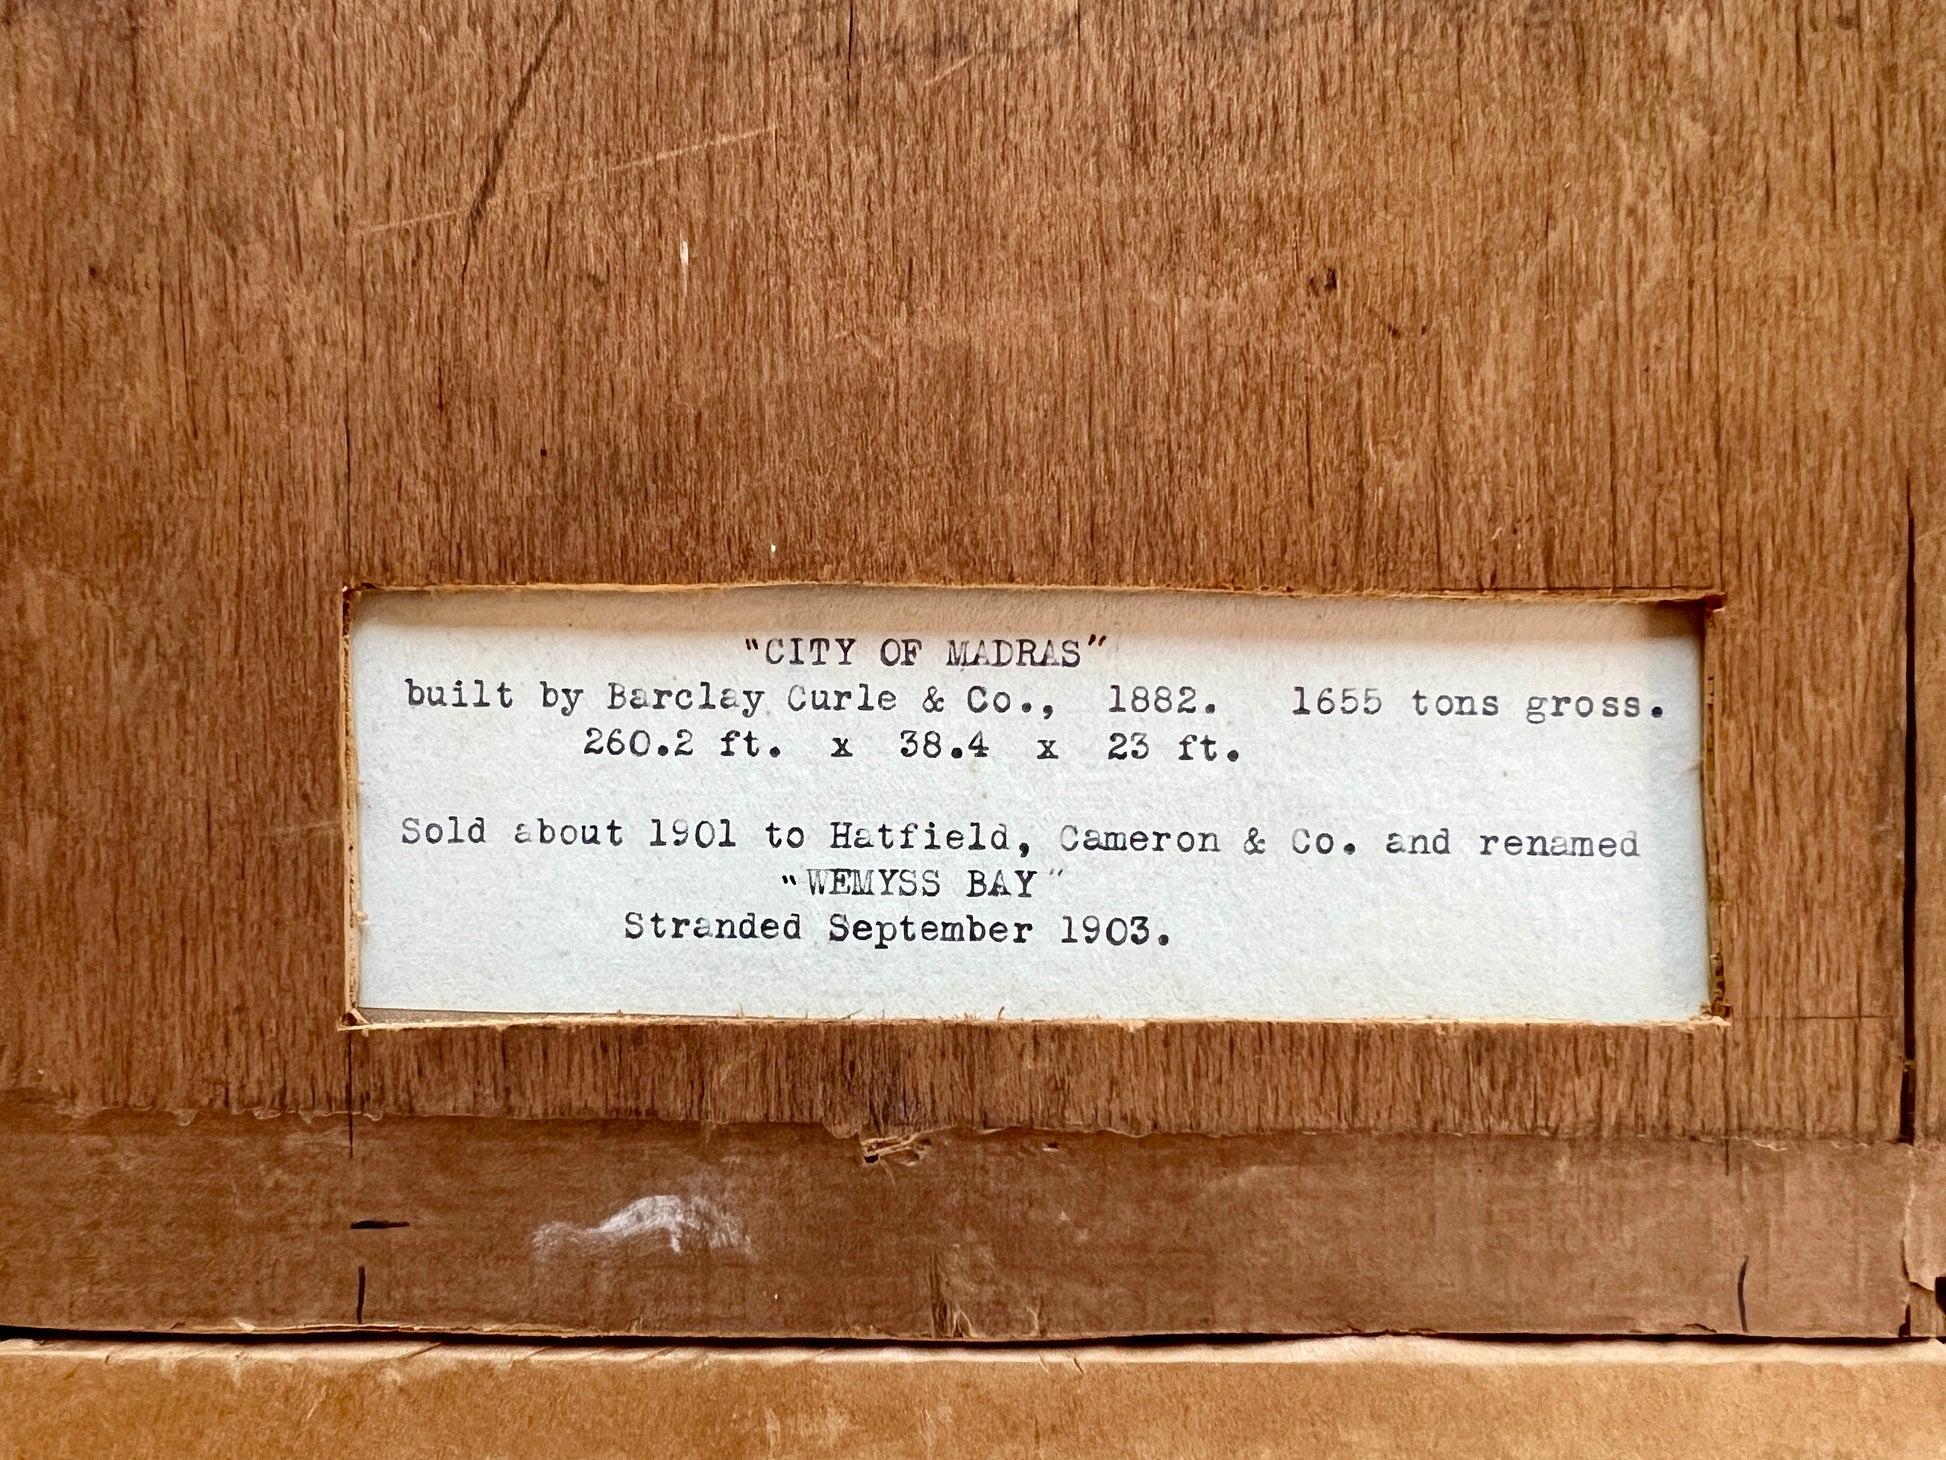 "CITY OF MADRAS"
built by Barclay Curle & Co., 1882. 1655 tons gross.
260.2 ft. x 38.4 x 23 ft.
Sold about 1901 to Hatfield, Cameron & Co. and renamed
"WEMYSS BAY"
Stranded September 1903.